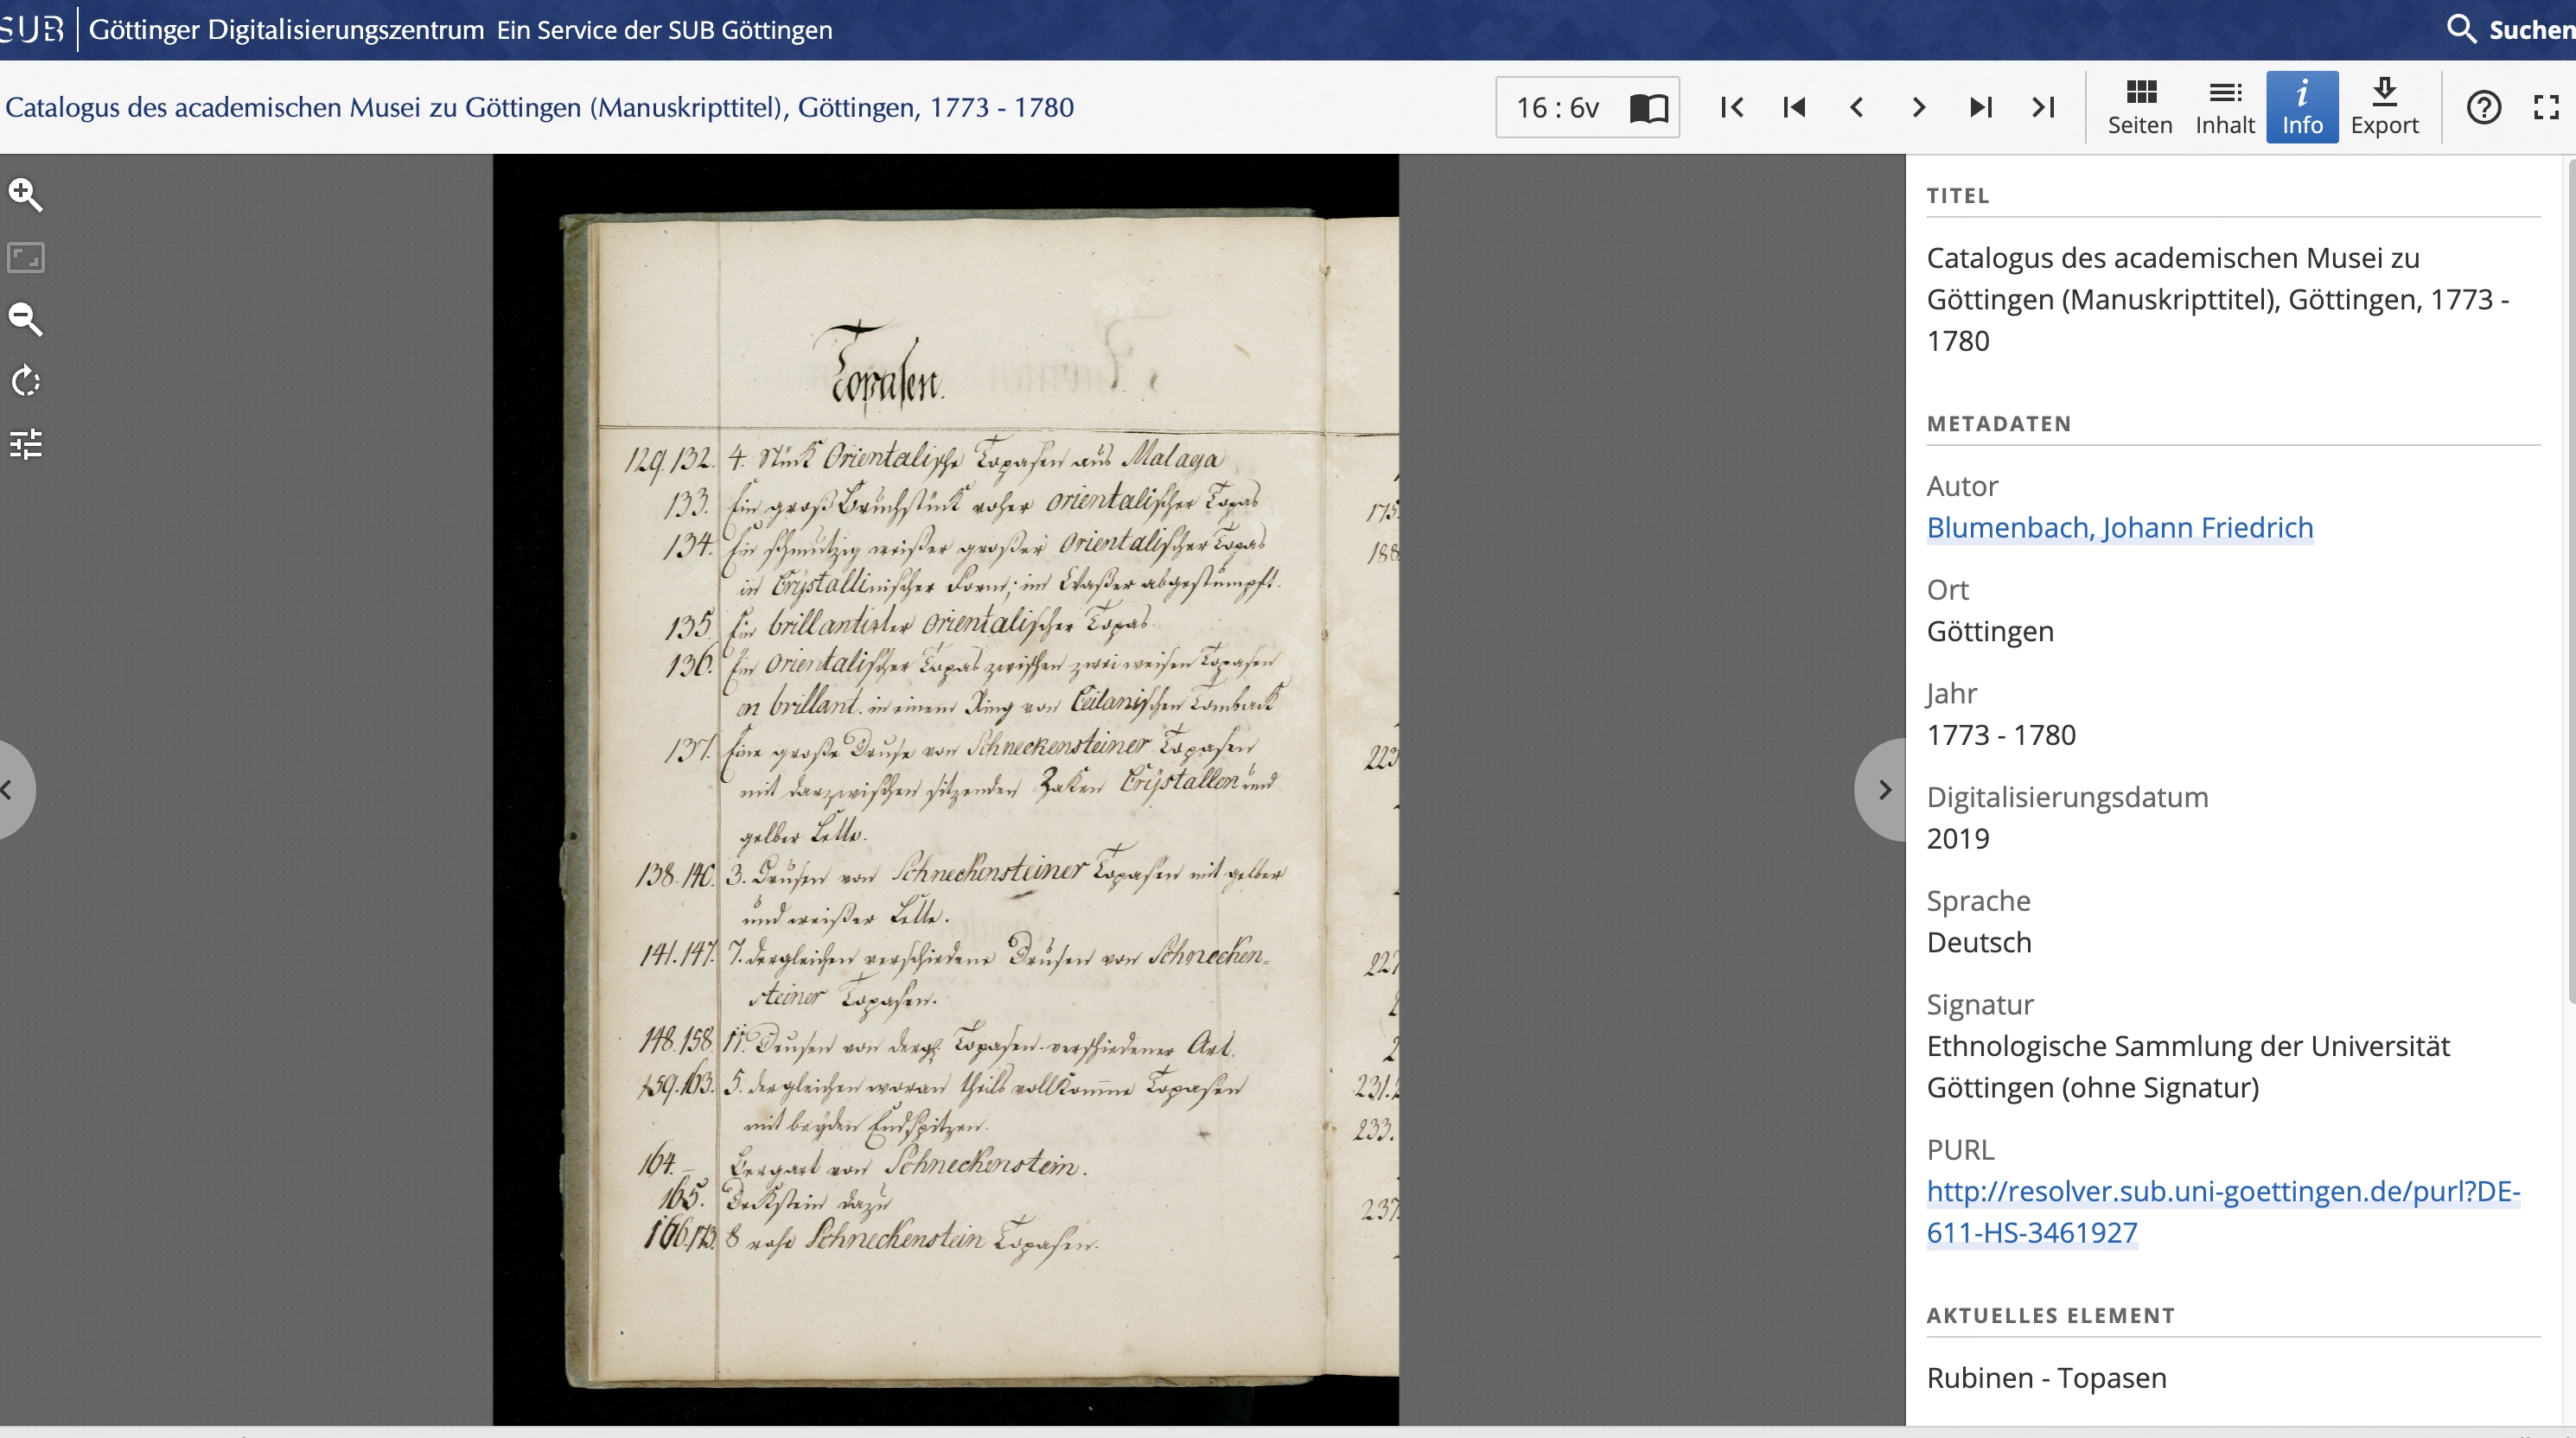 SUB Göttinger Digitalisierungszentrum Ein Service der SUB Göttingen
Suchen
Catalogus des academischen Musei zu Göttingen (Manuskripttitel), Göttingen, 1773 - 1780
16 : 6v
Seiten
Inhalt
i
Info
Export
Topasen.
129. 132. 4. Stück Orientalische Topasen aus Malaga
133. Ein groß Bruchstück roher orientalischer Topas
134. Ein schmutzig weißer großer orientalischer Topas
in Crystallinischer Form; im Waßer abgestumpft.
135. Ein brillantirter orientalischer Topas.
136. Ein orientalischer Topas zwischen zwei weisen Topasen
en brillant. in einem Ring von Ceilanischen Tomback
137. Eine große Druse von Schneckensteiner Topasen
mit darzwischen sitzenden Zaken Crÿstallen und
gelber Lette.
138. 140. 3. Drusen von Schneckensteiner Topasen mit gelber
und weißer Lette.
141. 147. 7. dergleichen verschiedene Drusen von Schnecken=
steiner Topasen.
148. 158. 11. Drusen von dergl. Topasen verschiedener Art.
159. 163. 5. dergleichen woran theils vollkomne Topasen
mit beÿden Endspitzen.
164. Bergart von Schneckenstein.
165. Deckstein dazu
166. 173. 8 rohe Schneckenstein Topasen.
175.
188
223
227
231.
233.
237.
TITEL
Catalogus des academischen Musei zu
Göttingen (Manuskripttitel), Göttingen, 1773 -
1780
METADATEN
Autor
Blumenbach, Johann Friedrich
Ort
Göttingen
Jahr
1773 - 1780
Digitalisierungsdatum
2019
Sprache
Deutsch
Signatur
Ethnologische Sammlung der Universität
Göttingen (ohne Signatur)
PURL
http://resolver.sub.uni-goettingen.de/purl?DE-
611-HS-3461927
AKTUELLES ELEMENT
Rubinen - Topasen